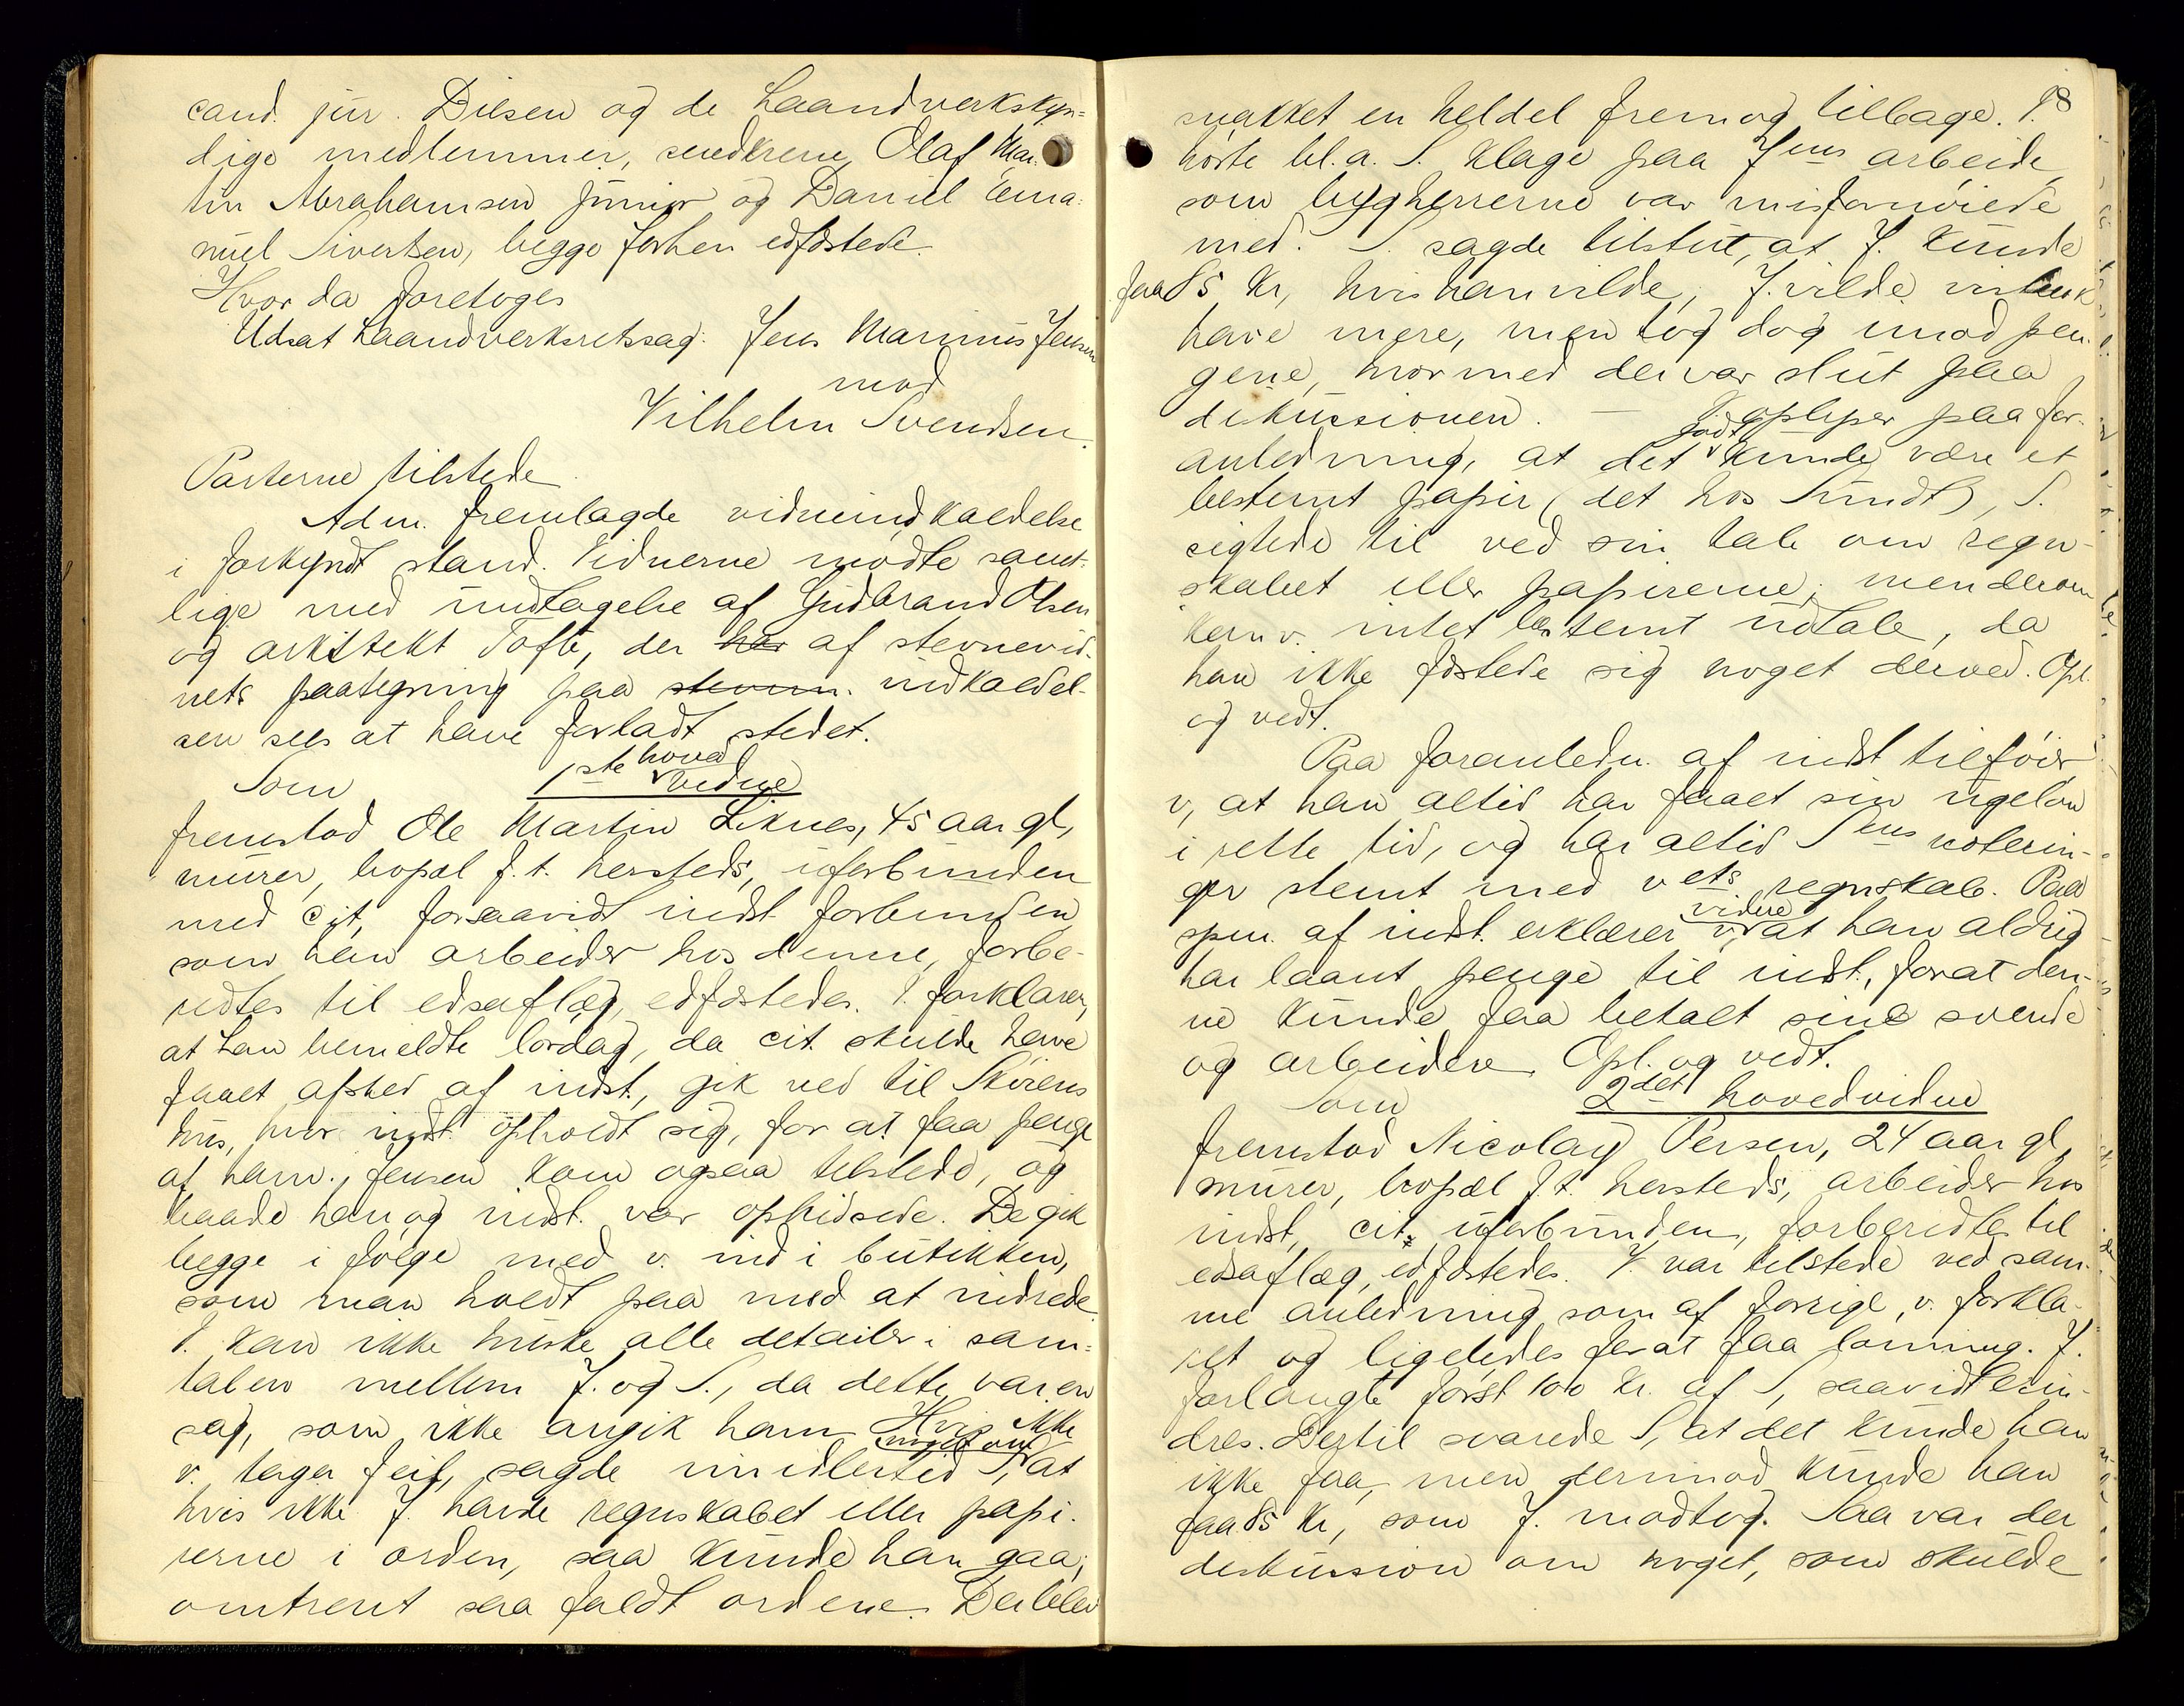 cand. jur. Diesen og de haandverkskyn=
dige medlemmer, snedkerne Olaf Mar=
tin Abrahamsen junior og Daniel Ema=
nuel Sivertsen, begge forhen edfæstede.
Hvor da foretoges
Udsat haandverksretssag: Jens Marinus Jensen
mod
Vilhelm Svendsen.
Parterne tilstede.
Adm. fremlagde vidneindkaldelse
i forkyndt stand. Vidnerne mødte samt-
lige med undtagelse af Gudbrand Olsen
og arkitekt Tofte, der har af stevnevid-
nets paategning paa stevnin. indkaldel-
sen sees at have forladt stedet.
Som 1ste hovedvidne
fremstod Ole Martin Liknes, 45 aar gl,
murer, bopæl f. t. hersteds, uforbunden
med cit, forsaavidt indst. forbunden
som han arbeider hos denne, forbe-
redtes til edsaflæg, edfæstedes. V. forklarer,
at han bemeldte lørdag, da cit. skulde have
faaet afsked af indst., gik ned til Skirens
hus, hvor indst. opholdt sig, for at faa penge
af ham. Jensen kom ogsaa tilstede, og
baade han og indst. var ophidsede. De gik
begge i følge med v. ind i butikken,
som man holdt paa med at indrede.
V. kan ikke huske alle detailer i sam=
talen mellem J. og S., da dette var en
sag, som ikke angik ham. Hvis ikke
v. tager feil, sagde imidlertid S. noget om at
hvis ikke J. havde regnskabet eller papi-
rerne i orden, saa kunde han gaa;
omtrent saa faldt ordene. Der blev
98
snakket en heldel frem og tilbage. V.
hørte bl.a. S. klage paa Jens arbeide,
som bygherrerne var misfornøiede
med. S. sagde tilslut, at J. kunde
faa 85 kr, hvis han vilde; J. vilde nok
have mere, men tog dog imod pen-
gene, hvormed der var slut paa
diskussionen. — V. oplyser paa for-
anledning, at det godt kunde være et
bestemt papir (det hos Sundt), S.
sigtede til ved sin tale om regn-
skabet eller papirerne; men derom
kan v. intet bestemt udtale, da
han ikke fæstede sig noget derved. Opl.
og vedt.
Paa foranledn. af indst tilføier
v, at han altid har faaet sin ugeløn
i rette tid, og har altid Sens noterin-
ger stemt med vets regnskab. Paa
spm. af indst. erklærer v. videre at han aldrig
har laant penge til indst., forat den-
ne kunde faa betalt sine svende
og arbeidere. Opl. og vedt.
Som 2det hovedvidne
fremstod Nicolay Persen, 24 aar gl,
murer, bopæl f. t. hersteds, arbeider hos
indst, cit. uforbunden, forberedtes til
edsaflæg, edfæstedes. V. var tilstede ved sam-
me anledning som af forrige v. forkla-
ret og ligeledes forat faa lønning. J.
forlangte først 100 kr. af S, saavidt erin-
dres. Dertil svarede S, at det kunde han
ikke faa, men derimod kunde han
faa 85 kr, som J. modtog. Saa var der
diskussion om noget, som skulde